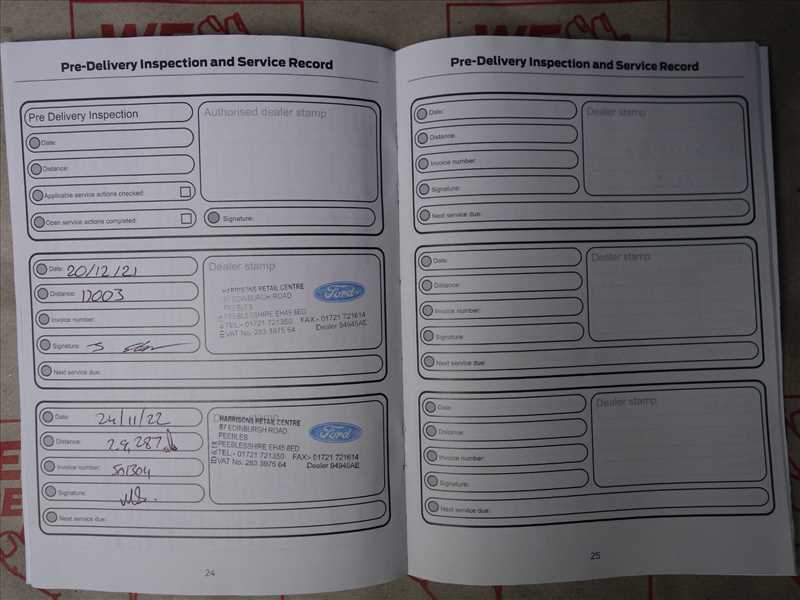 Pre-Delivery Inspection and Service Record
Pre Delivery Inspection
Authorised dealer stamp
Date:
Distance:
Applicable service actions checked:
Open service actions completed:
Signature:
Date: 20/12/21
Dealer stamp
Distance: 12003
HARRISONS RETAIL CENTRE
87 EDINBURGH ROAD
PEEBLES
PEEBLESSHIRE EH45 8ED
TEL:- 01721 721350 FAX:- 01721 721614
VAT No. 283 3975 64 Dealer 94945AE
Ford
Invoice number:
Signature:
Next service due:
Date: 24/11/22
Dealer stamp
Distance: 29,287
HARRISONS RETAIL CENTRE
87 EDINBURGH ROAD
PEEBLES
PEEBLESSHIRE EH45 8ED
TEL:- 01721 721350 FAX:- 01721 721614
VAT No. 283 3975 64 Dealer 94945AE
Ford
Invoice number: 501304
Signature:
Next service due:
24
Pre-Delivery Inspection and Service Record
Date:
Dealer stamp
Distance:
Invoice number:
Signature:
Next service due:
Date:
Dealer stamp
Distance:
Invoice number:
Signature:
Next service due:
Date:
Dealer stamp
Distance:
Invoice number:
Signature:
Next service due:
25